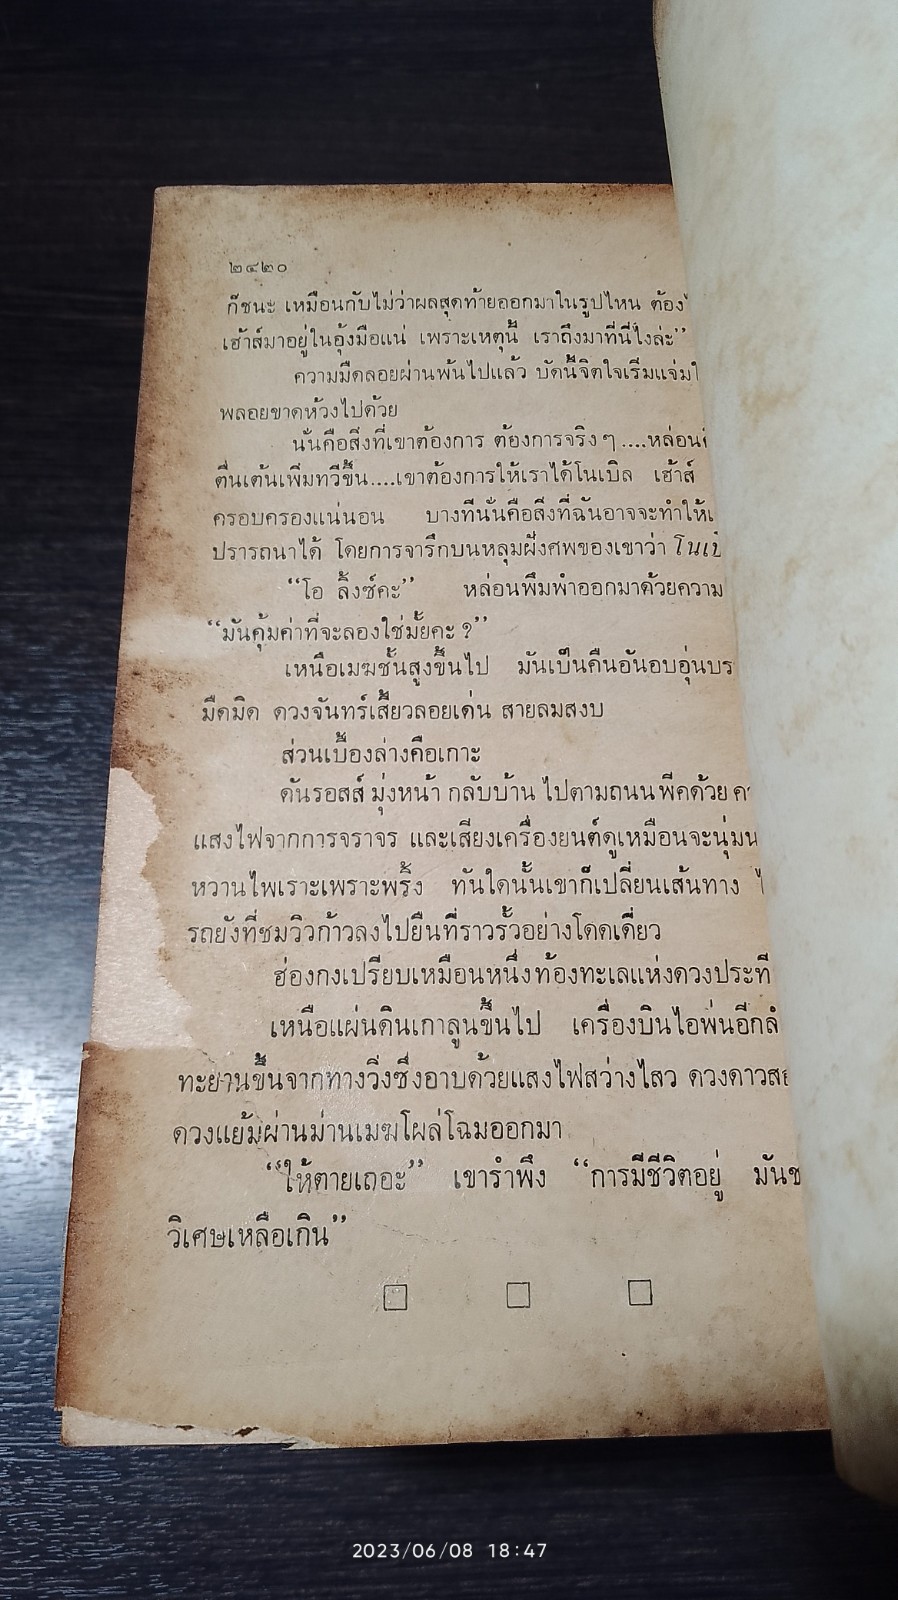 ๒๔๒๐
ก๊ชนะ เหมือนกับไม่ว่าผลสุดท้ายออกมาในรูปไหน ต้อง
เฮ้าส์มาอยู่ในอุ้งมือแน่ เพราะเหตุนี้ เราถึงมาที่นี่ไงล่ะ”
ความมืดลอยผ่านพ้นไปแล้ว บัดนี้จิตใจเริ่มแจ่ม
พลอยขาดห้วงไปด้วย
นั่นคือสิ่งที่เขาต้องการ ต้องการจริง ๆ ....หล่อน
ตื่นเต้นเพิ่มทวีขึ้น....เขาต้องการให้เราได้โนเบิล เฮ้าส์
ครอบครองแน่นอน บางทีนั่นคือสิ่งที่ฉันอาจจะทำให้
ปรารถนาได้ โดยการจารึกบนหลุมฝังศพของเขาว่า
“โอ ลิ้งซ์คะ” หล่อนพึมพำออกมาด้วยความ
“มันคุ้มค่าที่จะลองใช่มั้ยคะ ?”
เหนือเมฆชั้นสูงขึ้นไป มันเป็นคืนอันอบอุ่น
มืดมิด ดวงจันทร์เสี้ยวลอยเด่น สายลมสงบ
ส่วนเบื้องล่างคือเกาะ
ดันรอสส์ มุ่งหน้า กลับบ้าน ไปตามถนน พีคด้วย
แสงไฟจากการจราจร และเสียงเครื่องยนต์ดูเหมือนจะนุ่ม
หวานไพเราะเพราะพริ้ง ทันใดนั้นเขาก็เปลี่ยนเส้นทาง
รถยังที่ชมวิวก้าวลงไปยืนที่ราวรั้วอย่างโดดเดี่ยว
ฮ่องกงเปรียบเหมือนหนึ่งท้องทะเลแห่งดวงประที
เหนือแผ่นดินเกาลูนขึ้นไป เครื่องบินไอพ่นอีกลำ
ทะยานขึ้นจากทางวิ่งซึ่งอาบด้วยแสงไฟสว่างไสว ดวงดาว
ดวงแย้มผ่านม่านเมฆโผล่โฉมออกมา
“ให้ตายเถอะ” เขารำพึง “การมีชีวิตอยู่ มัน
วิเศษเหลือเกิน”
2023/06/08 18:47